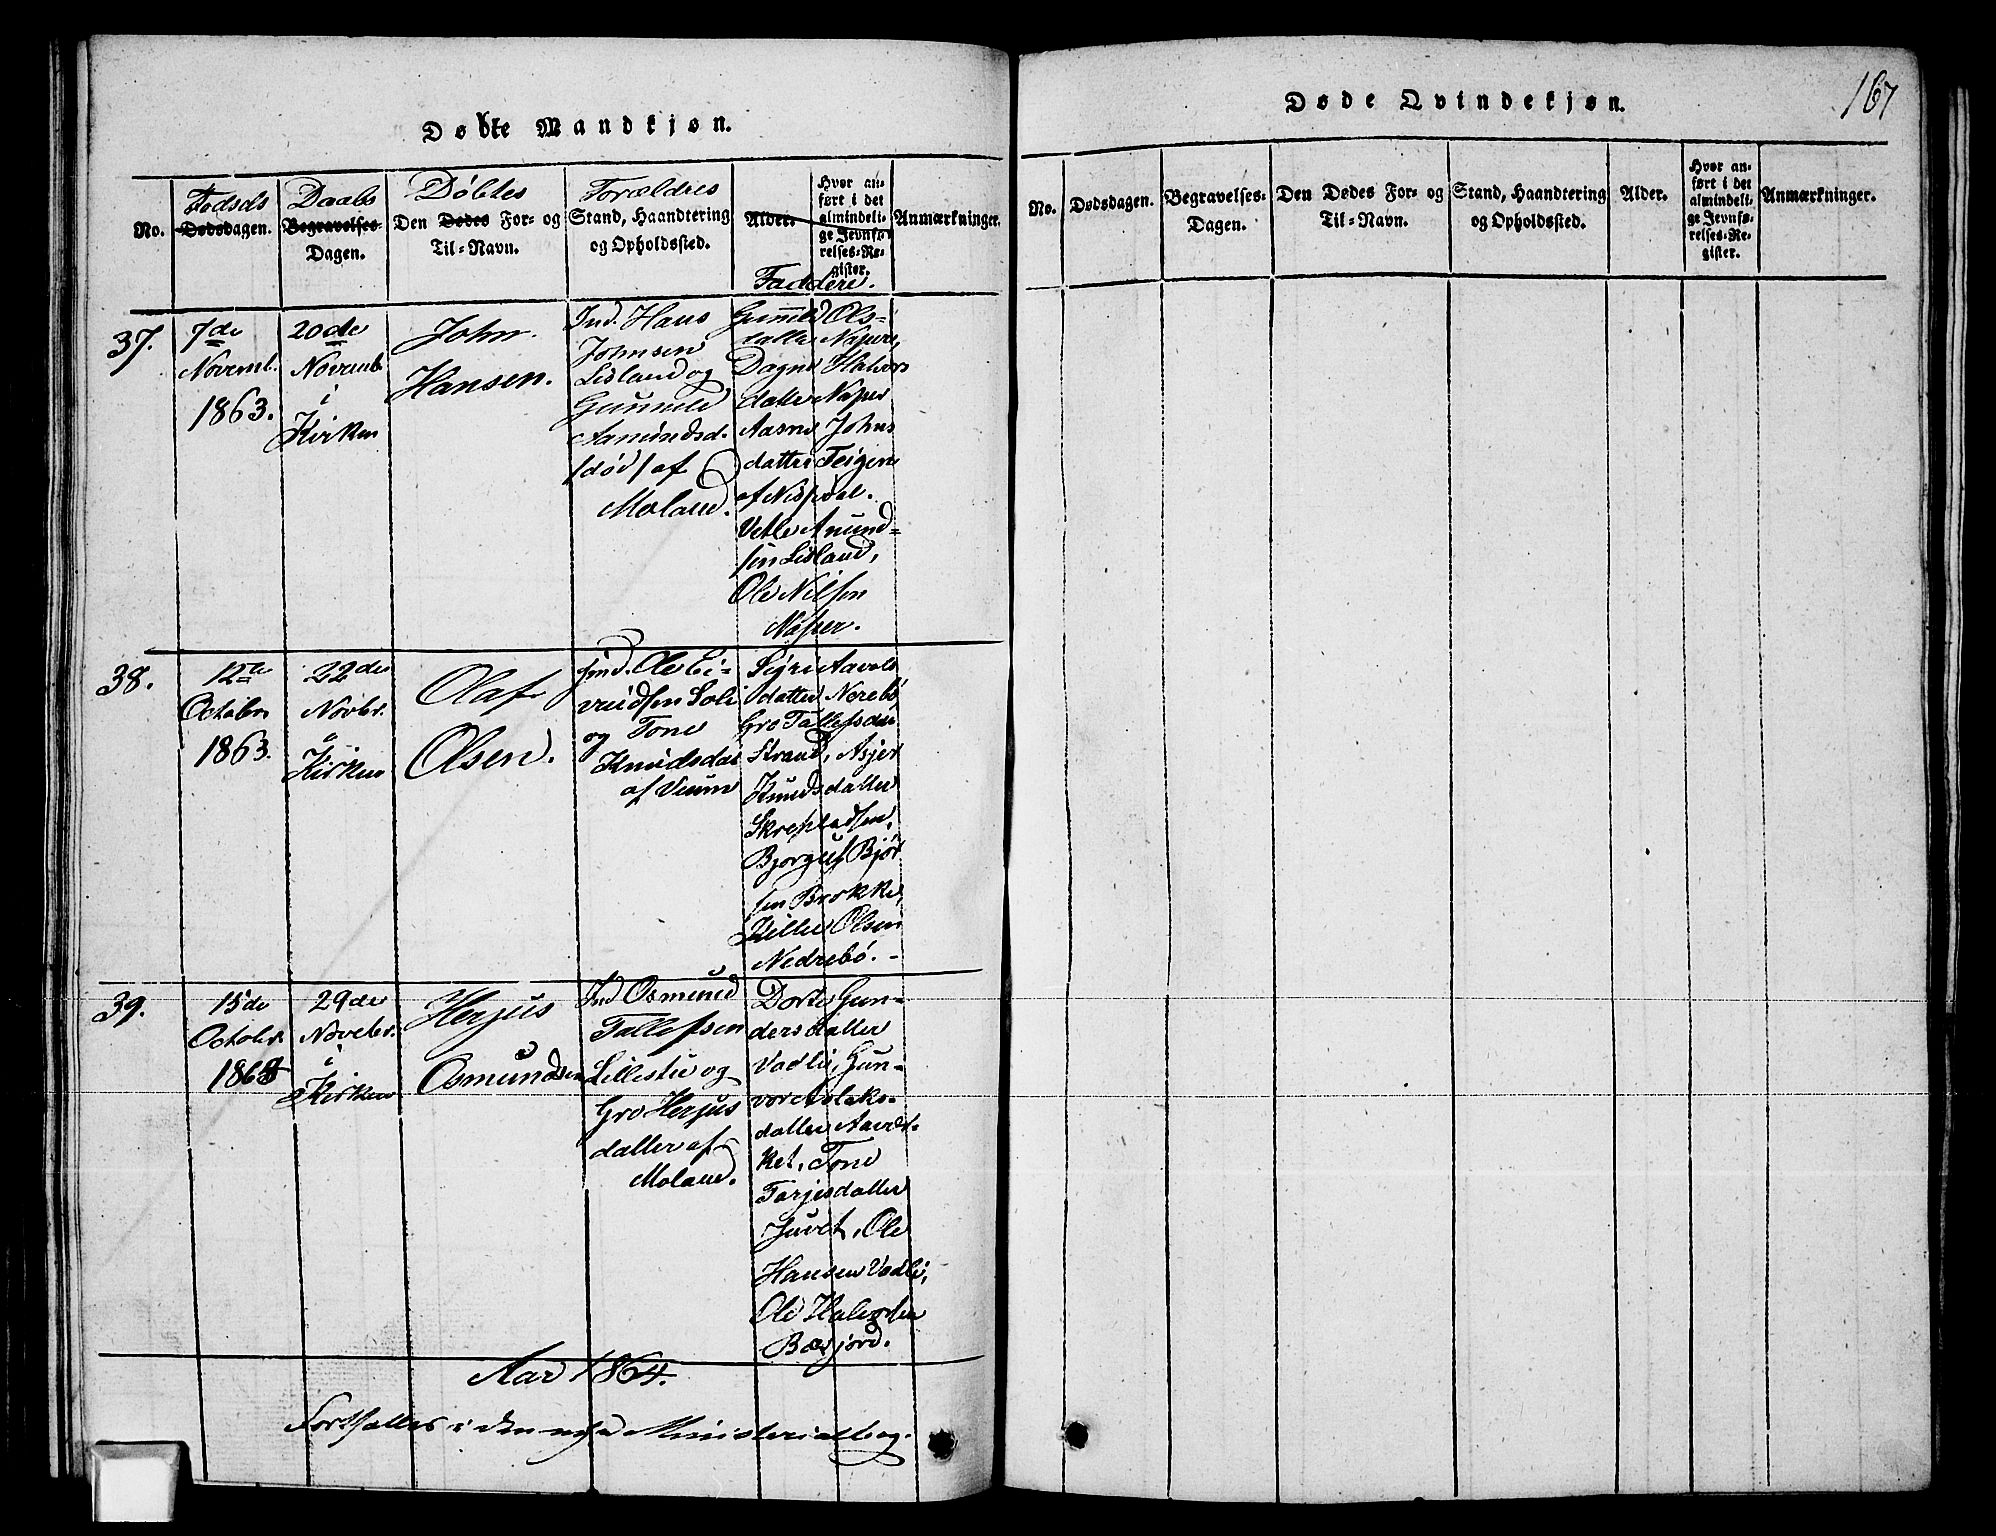 Døbte Mandkjøn.
No.
Fødsels
Dødsdagen.
Daabs
Begravelses-
Dagen.
Døbtes
Den Dødes For- og
Til-Navn.
Forældres
Stand, Haandtering
og Opholdssted.
Alder.
Hvor an-
ført i det
almindeli-
ge Jevnfø-
relses-Re-
gister.
Faddere.
Anmærkninger.
37.
7de
Novemb.
1863.
20de
Novemb.
i
Kirken
John
Hansen.
Ind. Hans
Johnsen
Lisland og
Gunnild
Aamundsd.
/død/ af
Moland.
Gunnild Ols-
datter Naper,
Dagne Halvors
datter Naper
Aasne Johns
datter Teigen
af Nispdal.
Vetle Anund-
sen Lisland,
Ole Nilsen
Naper.
38.
12te
October
1863.
22de
Novbr.
i
Kirken
Olaf
Olsen.
Ind. Ole Ei-
vindsen Soli
og Tone
Knudsdat
af Veum
Sigri Aavols
datter Nerebø,
Gro Tallefsdatt
Strand, Asjer
Knudsdatter
Bjorguf Bjør
sen Brokke,
Kittel Olsen
Nedrebø.
39.
15de
October
1863
29de
Novebr.
i
Kirken
Herjus
Osmundsen
Ind Osmund
Tallefsen
Lillestu og
Gro Herjus
datter af
Moland.
Dorte Gun-
dersdatter
Vadli, Gun-
vor Aslaks-
datter Aaves-
ket, Tone
Tarjesdatter
Juvet, Ole
Hansen Vadli,
Ole Halvorsen
Bæsjord.
Aar 1864.
Fortsættes i den nye Ministerialbog.
167
Døde Qvindekjøn.
No.
Dødsdagen.
Begravelses-
Dagen.
Den Dødes For- og
Til-Navn.
Stand, Haandtering
og Opholdssted.
Alder.
Hvor an-
ført i det
almindeli-
ge Jevnfø-
relses-Re-
gister.
Anmærkninger.